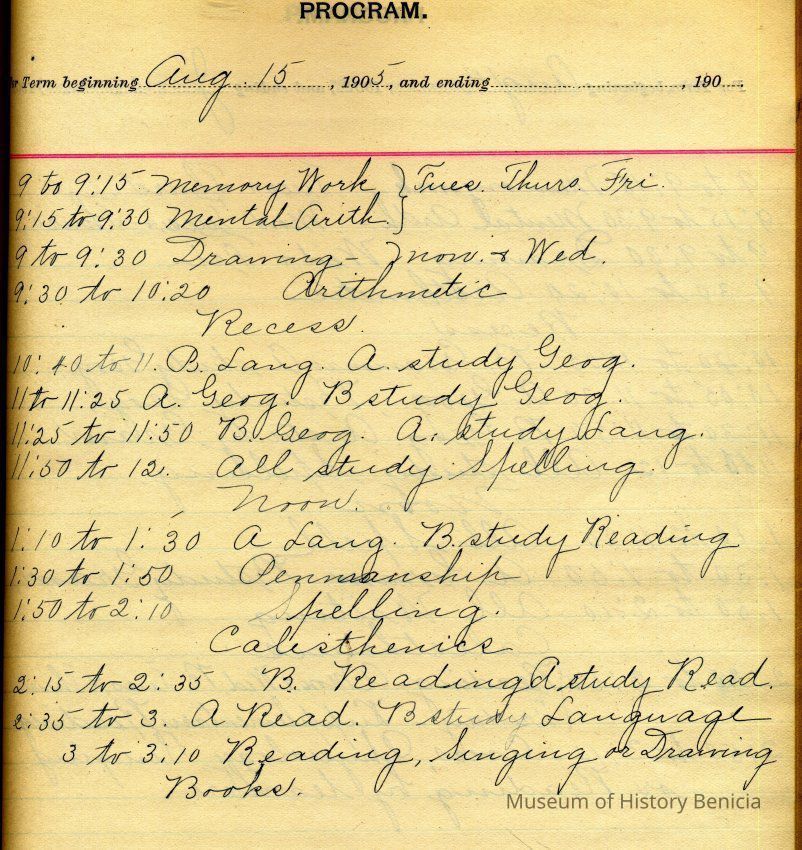 PROGRAM.
Term beginning Aug. 15, 1905, and ending, 190
9 to 9:15 Memory Work } Tues. Thurs. Fri.
9:15 to 9:30 Mental Arith. }
9 to 9:30 Drawing - } Mon. & Wed.
9:30 to 10:20 Arithmetic
Recess.
10:40 to 11. B. Lang. A. study Geog.
11 to 11:25 A. Geog. B study Geog.
11:25 to 11:50 B. Geog. A. study Lang.
11:50 to 12. All study Spelling.
Noon.
1:10 to 1:30 A Lang. B. study Reading
1:30 to 1:50 Penmanship
1:50 to 2:10 Spelling.
Calesthenics
2:15 to 2:35 B. Reading A study Read.
2:35 to 3. A Read. B study Language
3 to 3:10 Reading, Singing or Drawing
Books.
Museum of History Benicia